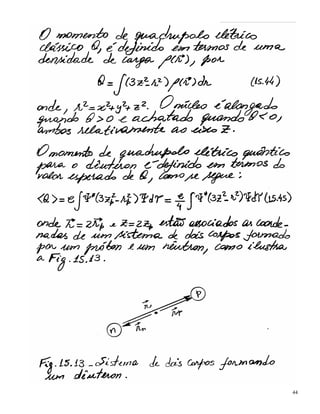 O momento de quadrupolo elétrico
clássico Q, é definido em termos de uma
densidade de carga ρ(r⃗), por
Q = ∫(3z²-r²) ρ(r⃗) dr⃗ (15.44)
onde, r² = x²+y²+z². O núcleo é alongado
quando Q>0 e achatado quando Q<0,
ambos relativamente ao eixo z.
O momento de quadrupolo elétrico quântico
para o dêuteron é definido em termos do
valor esperado de Q, como se segue:
<Q> = e ∫Ψ*(3z²p - r²p)Ψdr = e/4 ∫Ψ*(3z²-r²)Ψdr (15.45)
onde r⃗ = 2r⃗p e z = 2zp estão associados às coorde-
nadas de um sistema de dois corpos formado
por um próton e um nêutron, como ilustra
a Fig. 15.13.
r⃗
p
r⃗p
n
r⃗n
Fig. 15.13 - Sistema de dois corpos formando
um dêuteron.
44